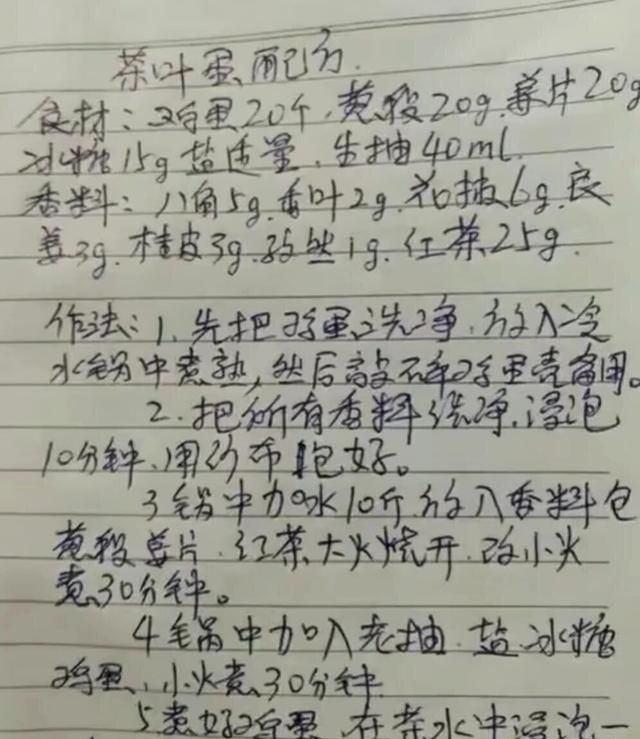 茶叶蛋配方.
食材：鸡蛋20个.葱段20g.姜片20g
冰糖15g盐适量.生抽40ml.
香料：八角5g.香叶2g.花椒6g.良
姜3g.桂皮3g.孜然1g.红茶25g.
作法：1.先把鸡蛋洗净.放入冷
水锅中煮熟,然后敲碎鸡蛋壳备用。
2.把所有香料洗净.浸泡
10分钟、用纱布包好。
3锅中加水10斤.放入香料包
葱段姜片.红茶大火烧开.改小火
煮30分钟。
4锅中加入老抽.盐.冰糖
鸡蛋、小火煮30分钟
5煮好鸡蛋.在茶水中浸泡一